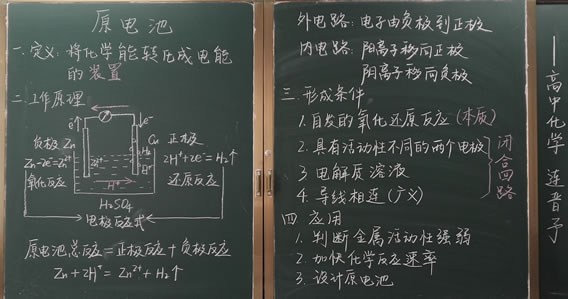 原电池
一.定义:将化学能转化成电能
的装置
二.工作原理
e⁻
e⁻
负极 Zn
Cu 正极
Zn-2e⁻=Zn²⁺
Zn²⁺
H₂
2H⁺+2e⁻=H₂↑
氧化反应
H⁺
H⁺
还原反应
H₂SO₄
电极反应式
原电池总反应=正极反应+负极反应
Zn+2H⁺=Zn²⁺+H₂↑
外电路:电子由负极到正极
内电路:阳离子移向正极
阴离子移向负极
三.形成条件
1.自发的氧化还原反应(本质)
2.具有活动性不同的两个电极
3.电解质溶液
4.导线相连(广义)
闭合回路
四 应用
1.判断金属活动性强弱
2.加快化学反应速率
3.设计原电池
——高中化学 连晋予